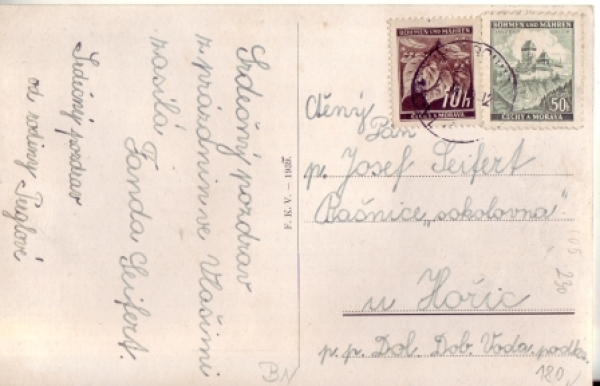 Srdečný pozdrav
z prázdnin ve Vlašimi
zasílá
Fanda Seifert.
Srdečný pozdrav
od rodiny
F. K. V. — 1939.
BÖHMEN UND MÄHREN
10h
ČECHY A MORAVA
BÖHMEN UND MÄHREN
50h
ČECHY A MORAVA
Ctěný
Pán
p. Josef Seifert
Bašnice „sokolovna"
u Hořic
p. p. Dol. Dob. Voda, podkr.
105
230
BN
180,